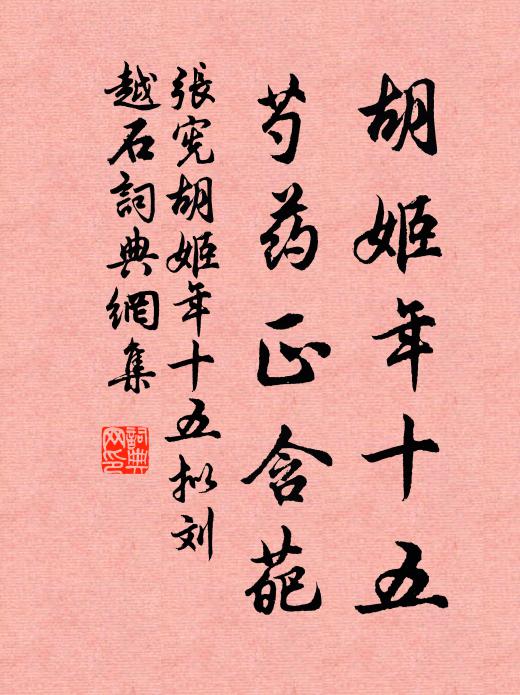 胡姬年十五
芍药正含葩
張宪胡姬年十五拟刘
越石詞典網集
詞典
网印